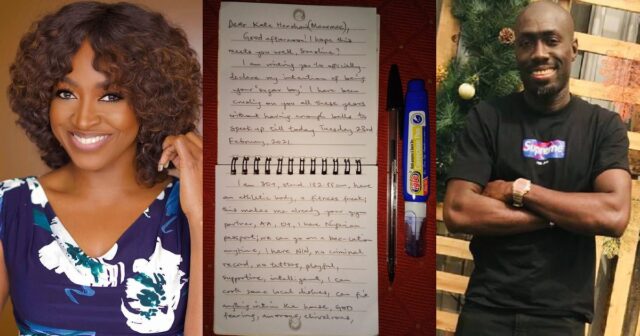 Dear Kate Henshaw (Mamameh),
Good afternoon! I hope this
meets you well, Sunshine?
I am writing you to officially
declare my intention of being
your "sugar boy". I have been
crushing on you all these years
without having enough balls to
speak up till today Tuesday 23rd
February, 2021.
I am 35+, stand 182.88cm, have
an athletic body, a fitness freak;
this makes me already your gym
partner, AA, O+, I have Nigerian
passport, we can go on a
anytime, I have NIN, no criminal
record, no tattoos, playful,
supportive, intelligent, I can
cook some local dishes, can fix
anything within the house, GOD
fearing, chivalrous,
Supreme